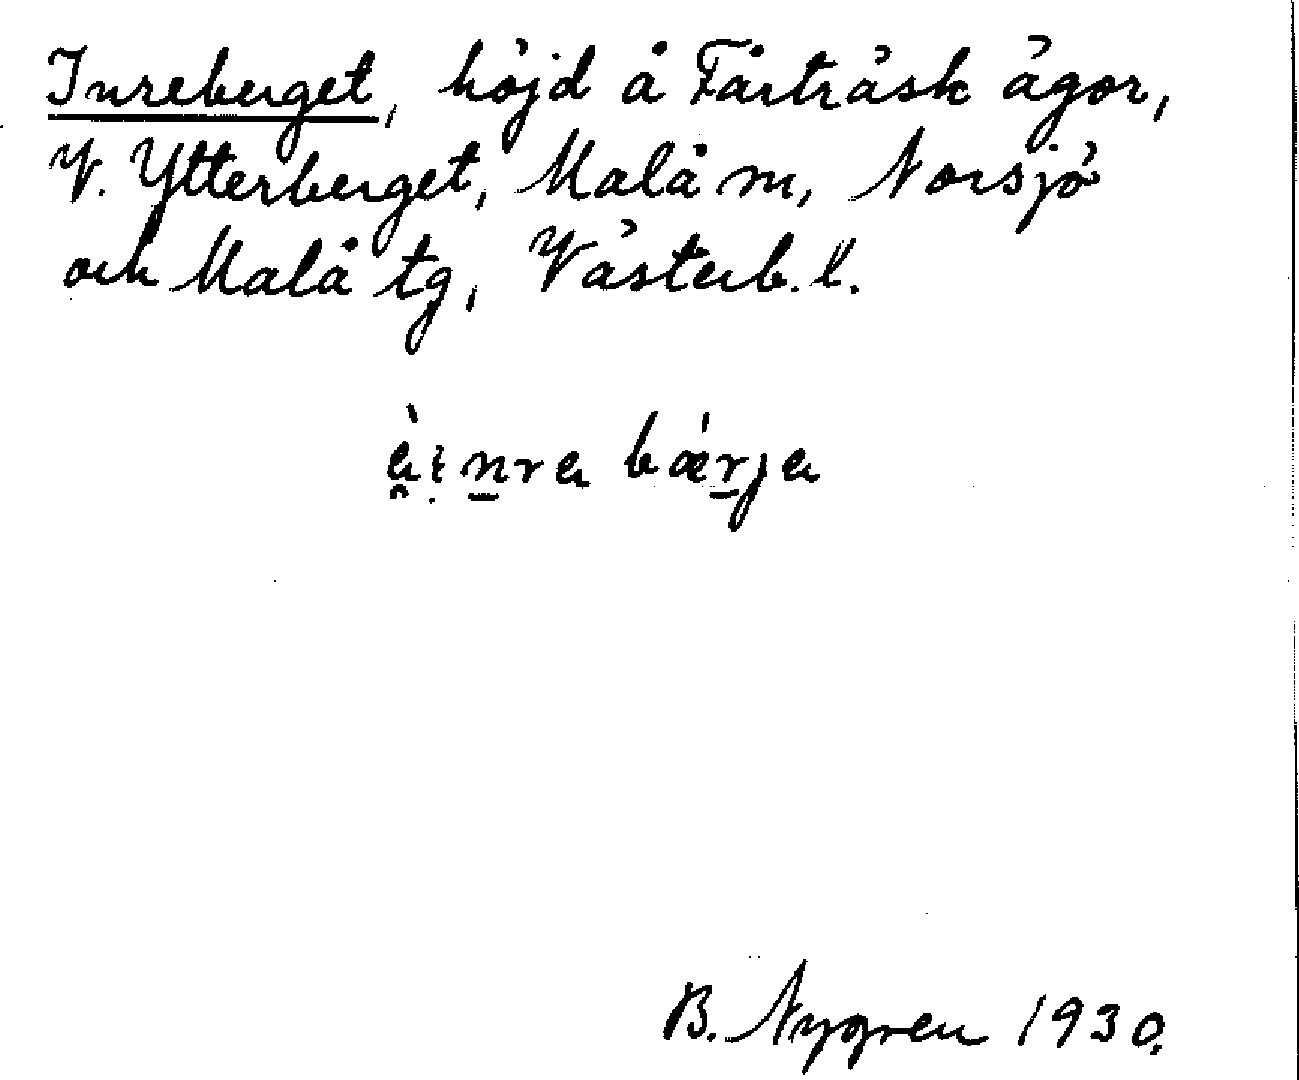 Inreberget, höjd å Fårträsk ägor,
V. Ytterberget, Malå m, Norsjö
och Malå tg, Västerb. l.
B. Nygren 1930.